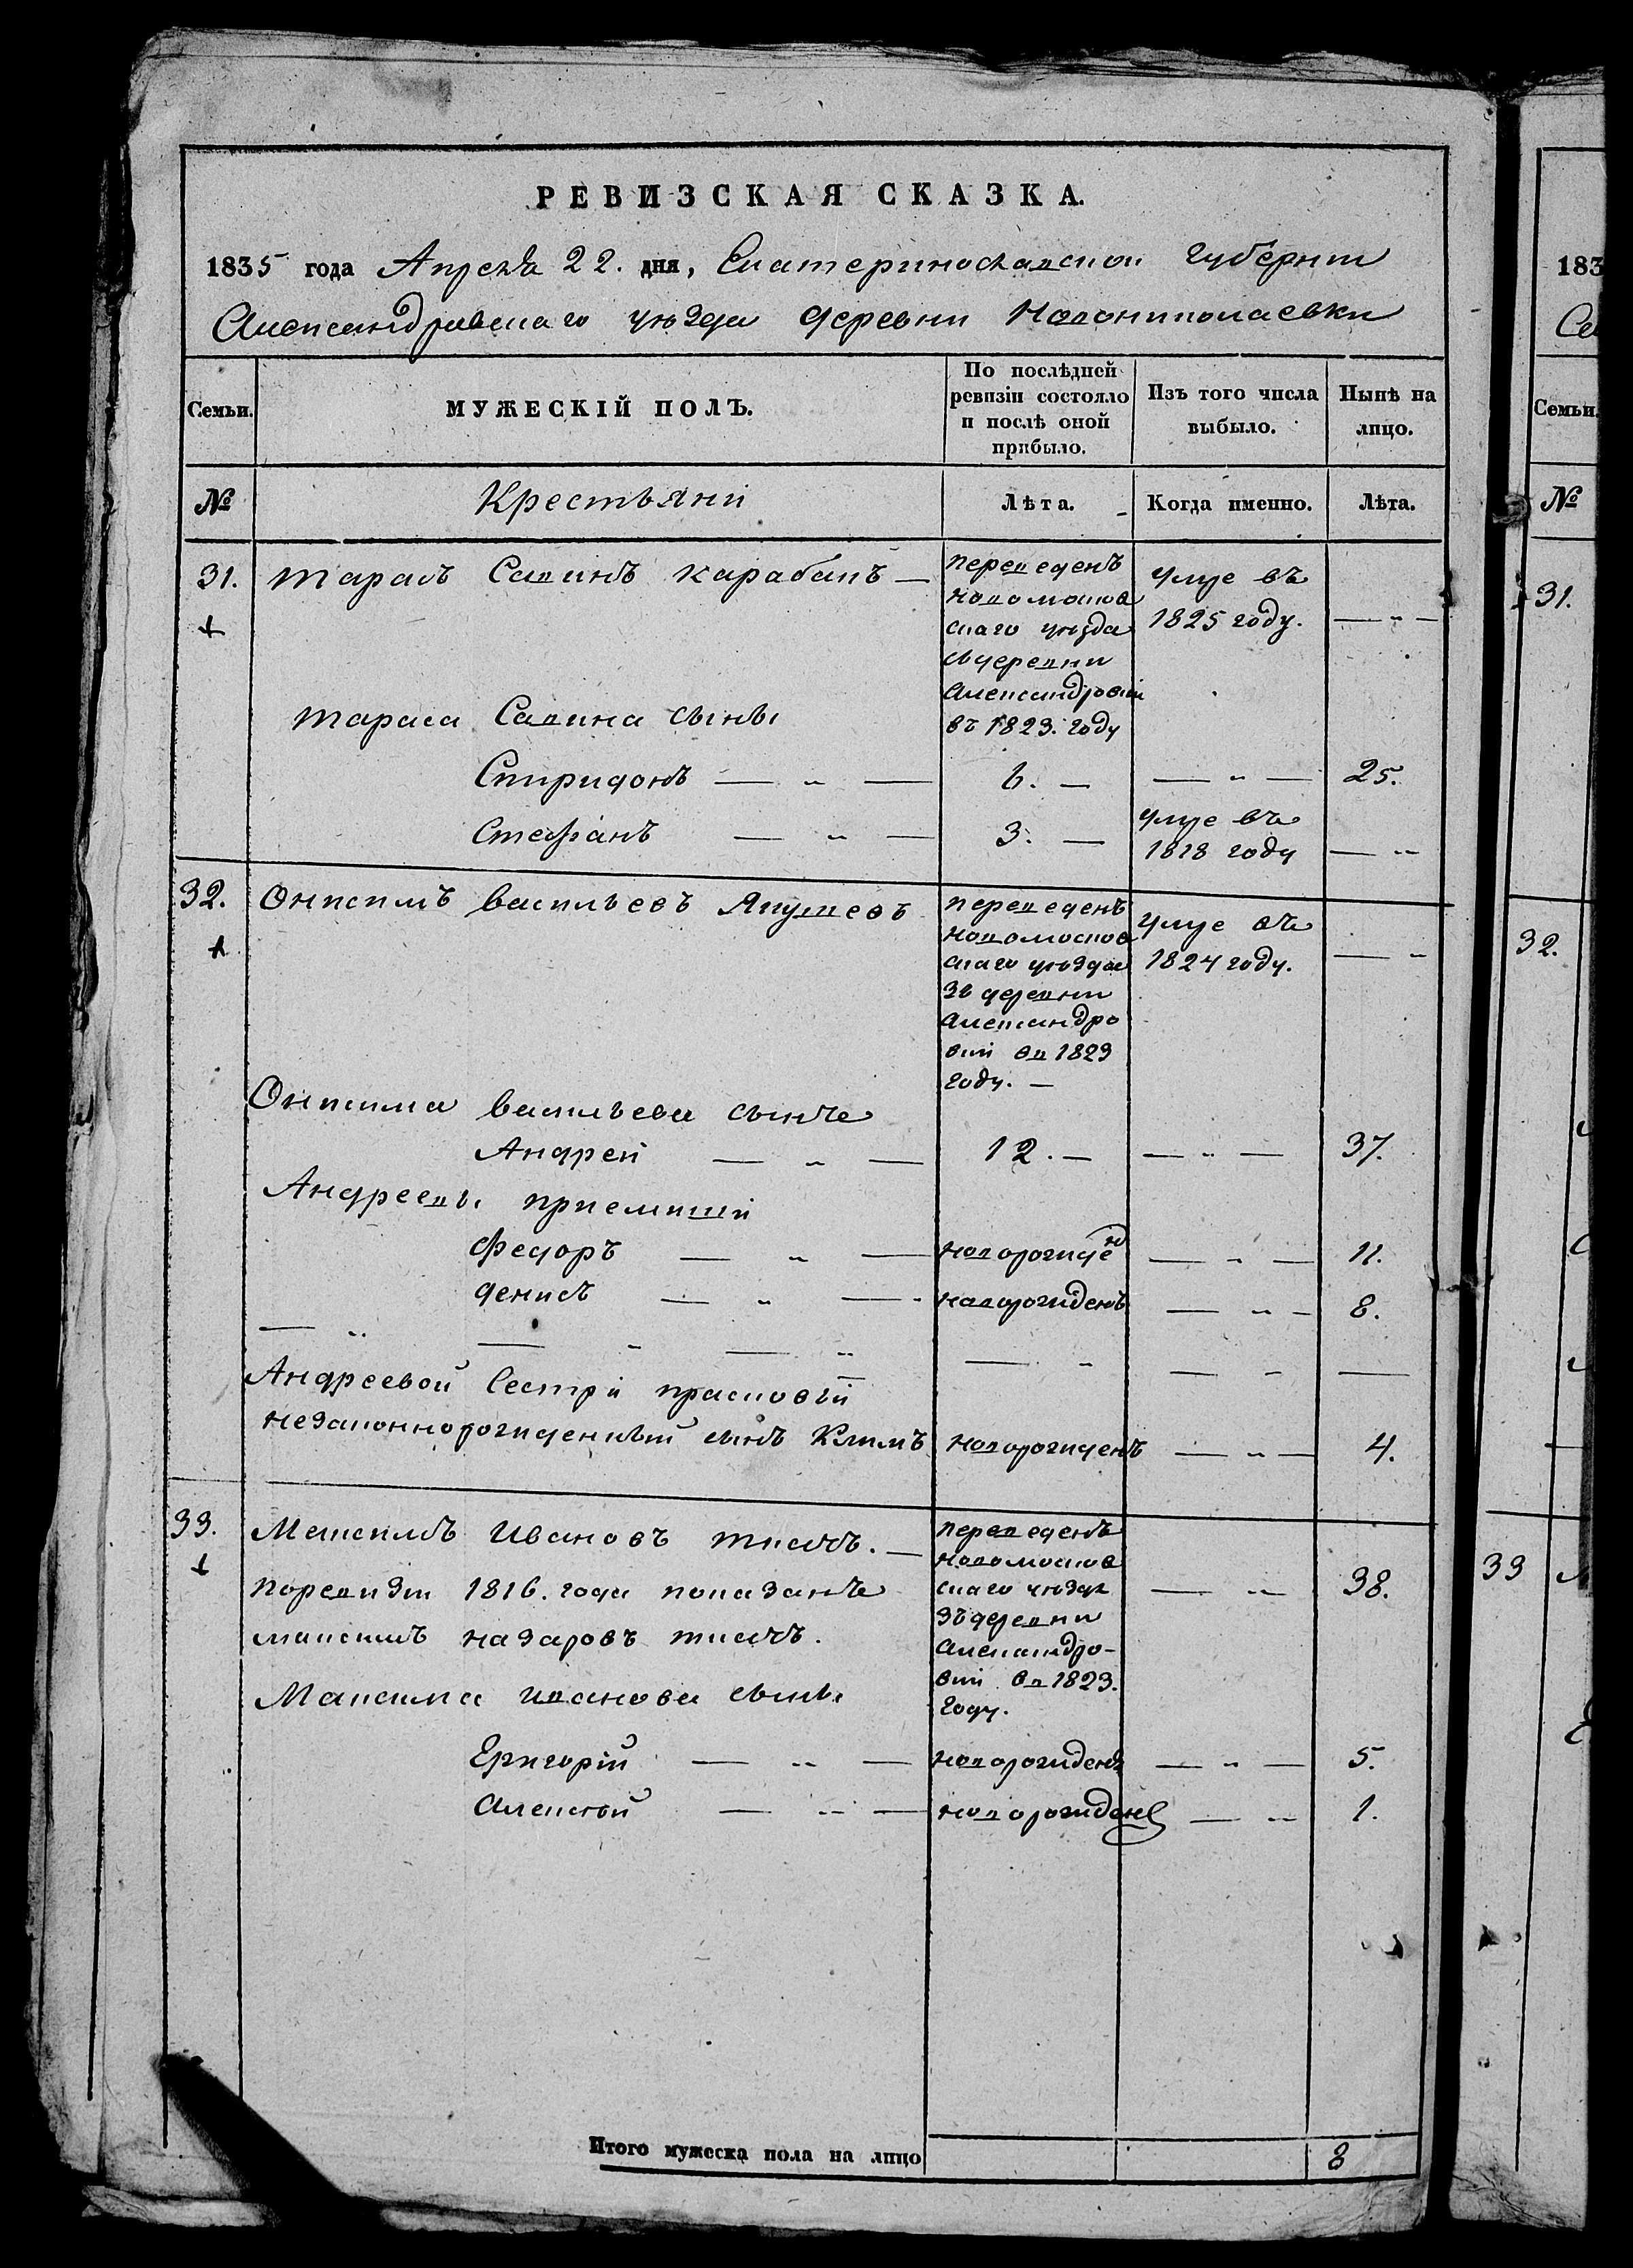 РЕВИЗСКАЯ СКАЗКА.
1835 года Апреля 22. дня, Екатеринославской губернии
Александровскаго уюзда деревни Новониколаевки
Семьи.
МУЖЕСКІЙ ПОЛЪ.
По послѣдней ревизіи состояло и послѣ оной прибыло.
Изъ того числа выбыло.
Нынѣ на лицо.
№
Крестьяни
Лѣта.
Когда именно.
Лѣта.
31. Тарасъ Савинъ Карабанъ —
переведенъ
новомосков
скаго уюзда
сьдеревни
Александровки
въ 1823. году
умре въ
1825 году.
— „ —
Тараса Савина сыны
Спиридонъ — „ — 6. — — „ — 25.
Стефанъ — „ — 3. —
умре въ
1818 году
— „
32. Онисимъ Васильевъ
переведенъ
новомосков
скаго уюзда
зъ деревни
Александро
вки въ 1823
году. —
умре въ
1824 году.
— „
Онисима Васильева сынъ
Андрей — „ — 12. — — „ — 37.
Андреевы приемыши
Федоръ — „ — новорожден — „ — 11.
Денисъ — „ — новорожденъ — „ — 8.
— „ — „ — „ — „ — „ —
Андреевой Сестри прасковій
незаконнорожденный сынъ Климъ новорожденъ — „ — 4.
33. Максимъ Ивановъ Писчъ. —
поревизіи 1816. года показанъ
максимъ назаровъ Писчъ.
переведенъ
новомосков
скаго уюзда
зъдеревни
Александро-
вки въ 1823.
году.
— „ 38.
Максима иванова сыны
Григорій — „ — новорожденъ — „ — 5.
Алексѣй — „ — новорожден — „ 1.
Итого мужеска пола на лицо 8
183
Се
Семьи.
№
31.
32.
33